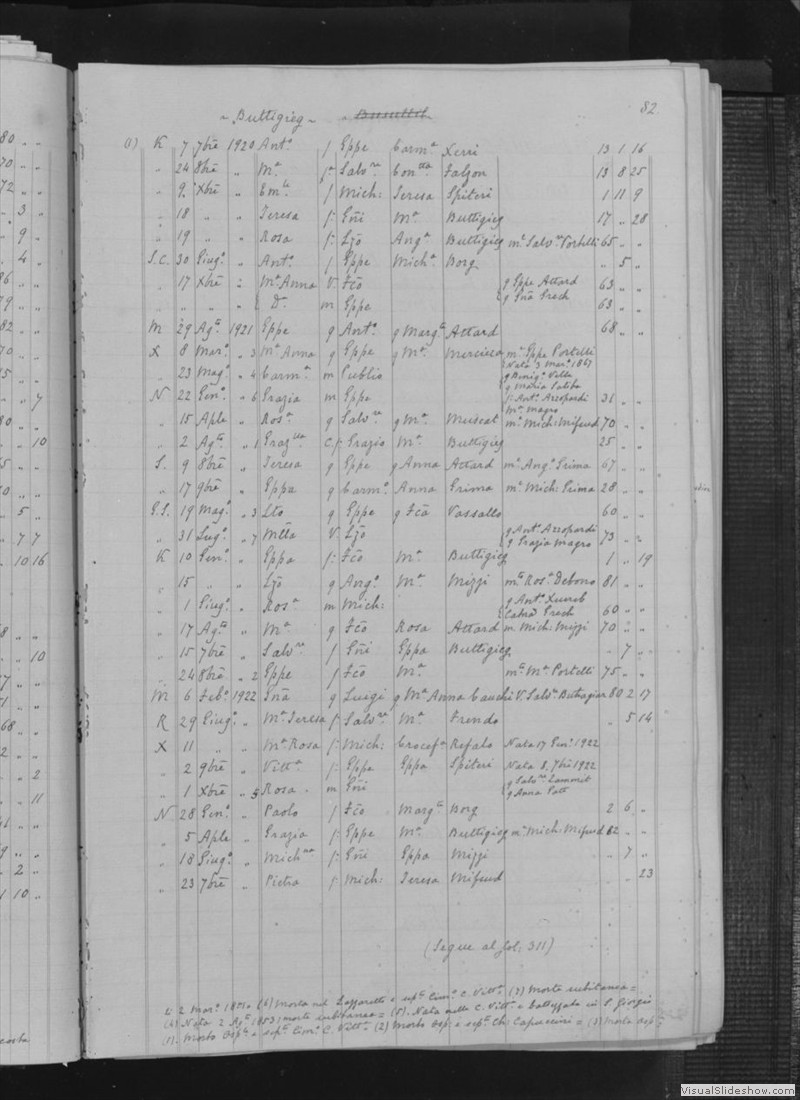 82
„ Buttigieg „ „ Busuttil
(1) K 7 7bre 1920 Antº f Eppe Carmª Xerri 13 1 16
„ 24 8bre „ Mª fª Salvre Contta Falzon 13 8 25
„ 9 Xbre „ Emle f Mich: Teresa Spiteri 1 11 9
„ 18 „ „ Teresa f: Gñi Mª Buttigieg 17 „ 28
„ 19 „ „ Rosa f: Lzo Angª Buttigieg mª Salvre Portelli 65 „ „
S.C. 30 Giugº „ Antº f Eppe Michª Borg „ 5 „
„ 17 Xbre „ Mª Anna V. Fco g Eppe Attard 63 „ „
„ „ „ „ Dª m Eppe g Gña Grech 63 „ „
M 29 Agto 1921 Eppe g Antº g Margta Attard 68 „ „
X 8 Marº „ 3 Mª Anna g Eppe g Mª Mercieca mª Eppe Portelli
Nata 3 Marº 1867
„ 23 Magº „ 4 Carmª m Publio g Benigº Vella
g Maria Saliba
N 22 Genº „ 6 Grazia m Eppe f: Antº Azzopardi 31 „ „
Mª Magro
„ 15 Aple „ Rosª g Salvre g Mª Muscat mª Mich: Mifsud 70 „ „
„ 2 Agto „ 1 Grazlla C.f: Grazio Mª Buttigieg 25 „ „
S. 9 8bre „ Teresa g Eppe g Anna Attard mª Angº Grima 67 „ „
„ 17 9bre „ Eppa g Carmº Anna Grima mª Mich: Grima 28 „ „
G.S. 19 Magº „ 3 Lto g Eppe g Fca Vassallo 60 „ „
„ 31 Lugº „ 7 Mtta V. Lzo g Antº Azzopardi 73 „ „
g Grazia Magro
K 10 Genº „ Eppa f: Fco Mª Buttigieg 1 „ 19
„ 15 „ „ Lzo g Angº Mª Mizzi mtº Rosª Debono 81 „ „
„ 1 Giugº „ Rosª m Mich: g Antº Xuereb 60 „ „
Catna Grech
„ 17 Agto „ Mª g Fco Rosa Attard m Mich: Mizzi 70 „ „
„ 15 7bre „ Salvre f Gñi Eppa Buttigieg „ 7 „
„ 24 8bre „ 2 Eppe f Fco Mª mtº Mª Portelli 75 „ „
M 6 Febº 1922 Gña g Luigi g Mª Anna Cauchi V. Salvre Buttigieg 80 2 17
R 29 Giugº „ Mª Teresa f: Salvre Mª Frendo „ 5 14
X 11 „ „ Mª Rosa f: Mich: Crocefª Refalo Nata 17 Genº 1922
„ 2 9bre „ Vittª f: Eppe Eppa Spiteri Nata 8 7bre 1922
„ 1 Xbre „ 5 Rosa m Gñi g Salvre Zammit
g Anna Pott
N 28 Genº „ Paolo f Fco Margta Borg 2 6 „
„ 5 Aple „ Grazia f: Eppe Mª Buttigieg mª Mich: Mifsud 62 „ „
„ 18 Giugº „ Michna f: Gñi Eppa Mizzi „ 7 „
„ 23 7bre „ Pietra f Mich: Teresa Mifsud „ „ 23
(Segue al fol: 311)
2 Marº (6) Morta nel Lazzaretto e septa Cimº C. Vittª (7) Morta subitanea =
(4) Nata 2 Agto 1853; morte subitanea = (5). Nata nella C. Vittª e battezzata in S. Giorgio
(1). Morto Ospe e septº Cimº C. Vittª (2) Morto Osp: e septº Ch. Capuccini = (3) Morta Osp:
VisualSlideshow.com